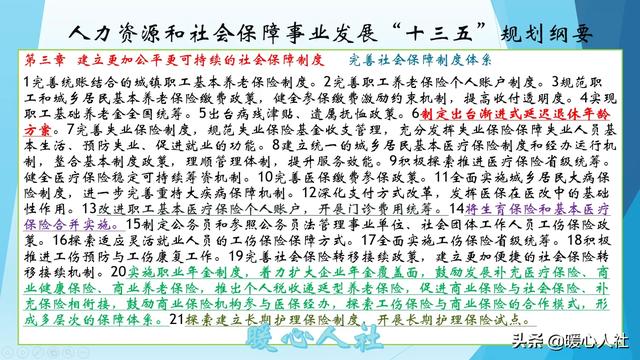 人力资源和社会保障事业发展“十三五”规划纲要
第三章 建立更加公平更可持续的社会保障制度 完善社会保障制度体系
1完善统账结合的城镇职工基本养老保险制度。2完善职工养老保险个人账户制度。3规范职
工和城乡居民基本养老保险缴费政策，健全参保缴费激励约束机制，提高收付透明度。4实现
职工基础养老金全国统筹。5出台病残津贴、遗属抚恤政策。6制定出台渐进式延迟退休年龄
方案。7完善失业保险制度，规范失业保险基金收支管理，充分发挥失业保险保障失业人员基
本生活、预防失业、促进就业的功能。8建立统一的城乡居民基本医疗保险制度和经办运行机
制，整合基本制度政策，理顺管理体制，提升服务效能。9积极探索推进医疗保险省级统筹。
健全医疗保险稳定可持续筹资机制。10完善医保缴费参保政策。11全面实施城乡居民大病保
险制度，进一步完善重特大疾病保障机制。12深化支付方式改革，发挥医保在医改中的基础
性作用。13改进职工基本医疗保险个人账户，开展门诊费用统筹。14将生育保险和基本医疗
保险合并实施。15制定公务员和参照公务员法管理事业单位、社会团体工作人员工伤保险政
策。16探索适应灵活就业人员的工伤保险保障方式。17全面实施工伤保险省级统筹。18积极
推进工伤预防与工伤康复工作。19完善社会保险转移接续政策，建立更加便捷的社会保险转
移接续机制。20实施职业年金制度，着力扩大企业年金覆盖面，鼓励发展补充医疗保险、商
业健康保险、商业养老保险，推出个人税收递延型养老保险，促进商业保险与社会保险、补
充保险相衔接，鼓励商业保险机构参与医保经办，探索工伤保险与商业保险的合作模式，形
成多层次的保障体系。21探索建立长期护理保险制度，开展长期护理保险试点。
暖心人社
头条@暖心人社